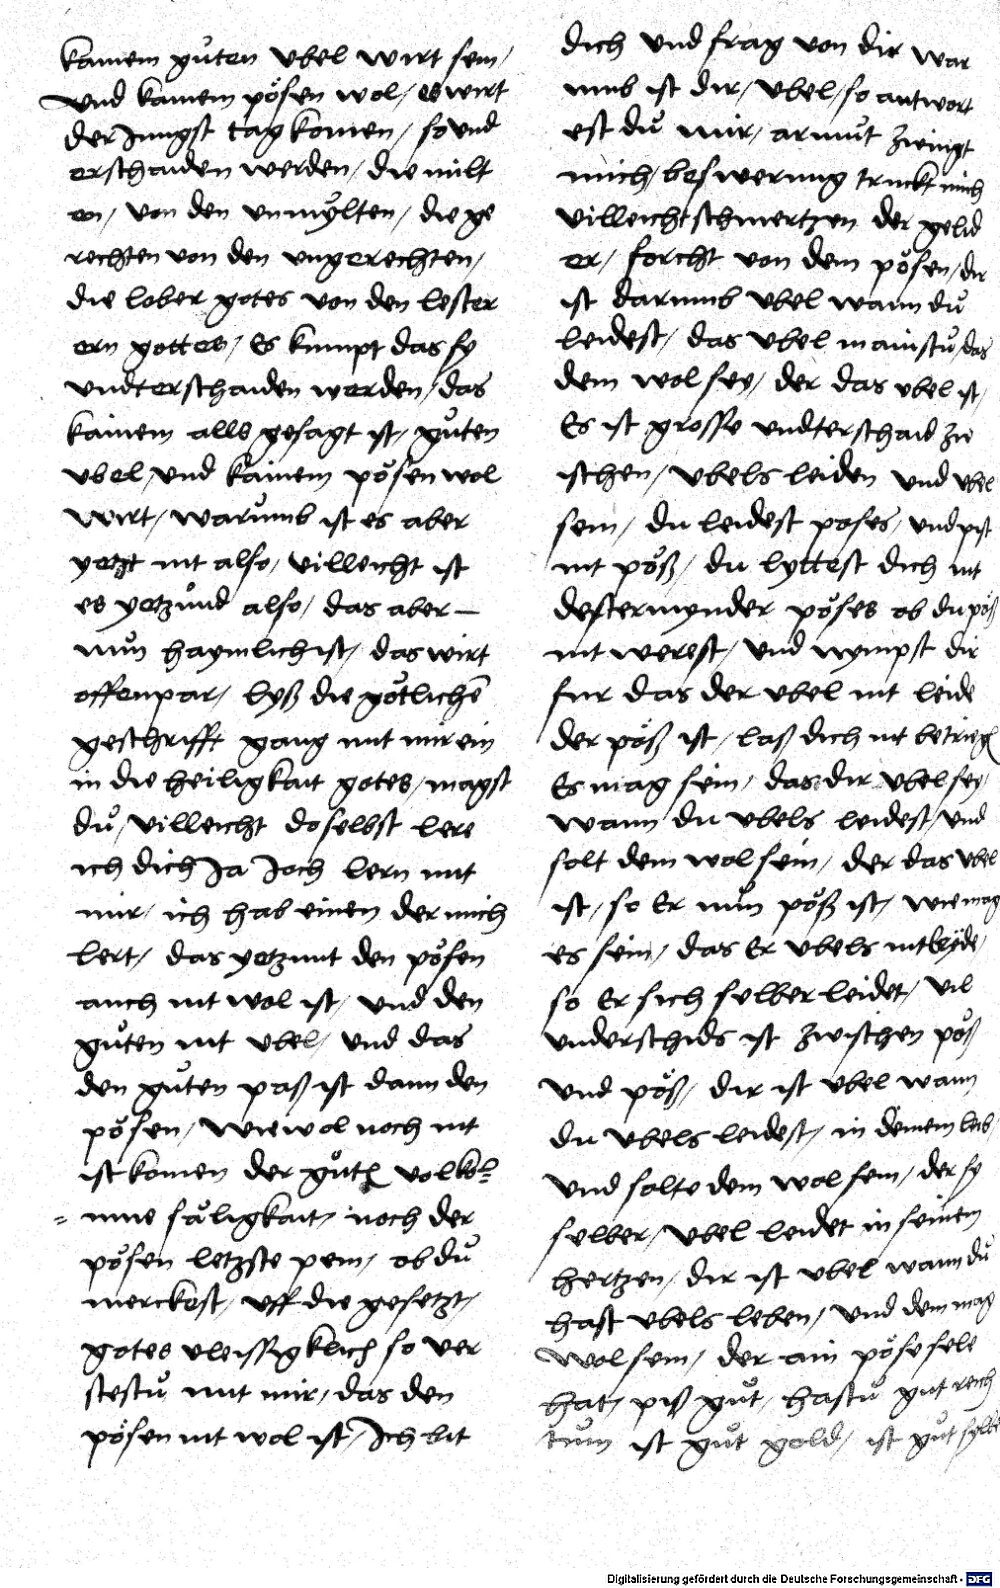 kainem gůten vbel wirt sein /
vnd kainem pősen wol / es wirt
der Jungst tag komen / so vnd
erschaiden werden / die milt
en / von den vnmÿlten / die ge
rechten von den vngerechten /
die lober gotes von den lester
ern gottes / Es kumpt das sy
vndterschaiden werden / das
kainem alls gesagt ist / gůten
vbel / vnd kainem pősen wol
wirt / warůmb ist es aber
yetzt nit also / villeicht ist
es yetzůnd also / das aber —
nůn haymlich ist / das wirt
offenpar / lyß die gőtlichē
geschrifft gang mit mir ein
in die heiligkait gotes / magst
dů / villeicht doselbst lere
ich dich Ja Joch lern mit
mir / ich hab einen der mich
lert / das yetzunt den pősen
auch nit wol ist / vnd den
gůten nit vbel / vnd das
den gůten paß ist dann den
pősen / wiewol noch nit
ist komen der gůtē volko
mne såligkait / noch der
pősen letzste pein / ob dů
merckest / vff die gesetzt /
gotes vleissigklich so ver
stestů mit mir / das den
pősen nit wol ist / Ich bit
dich vnd frag von dir war
umb ist dir / vbel / so antwort
est dů mir / armůt zwingt
mich / beswerung truckt mich
villeicht schmertzen der gelid
er / forcht von dem pősen / dir
ist darumb vbel wann dů
leidest / das vbel mainstů / das
dem wol sey / der das vbel ist /
Es ist grosse vndterschaid zw
ischen / vbels leiden vnd vbel
sein / du leidest poses / vnd pist
nit pőß / du lyttest dich nit
destermynder pőses ob du pőß
nit werest / vnd nympst dir
fur das der vbel nit leide
der pőß ist / laß dich nit betrieg
Es mag sein / das dir vbel sey /
wann du vbels leidest / vnd
solt dem wol sein / der das vbel
ist / so Er nůn pőß ist / wie mag
es sein / das Er vbels nit leyde /
so Er sich selber leidet / vil
vnderschids ist zwischen pőß
vnd pőß / dir ist vbel wann
du vbels leidest / in deinem leib /
vnd solte dem wol sein / der sy
selber / vbel leidet in seinem
hertzen / dir ist vbel wann dů
hast vbels leben / vnd dem mag
wol sein / der ain pőse sele
hat / piß gůt / hastů gut reich
tum ist gůt gold / ist gůt sylber
Digitalisierung gefördert durch die Deutsche Forschungsgemeinschaft - DFG